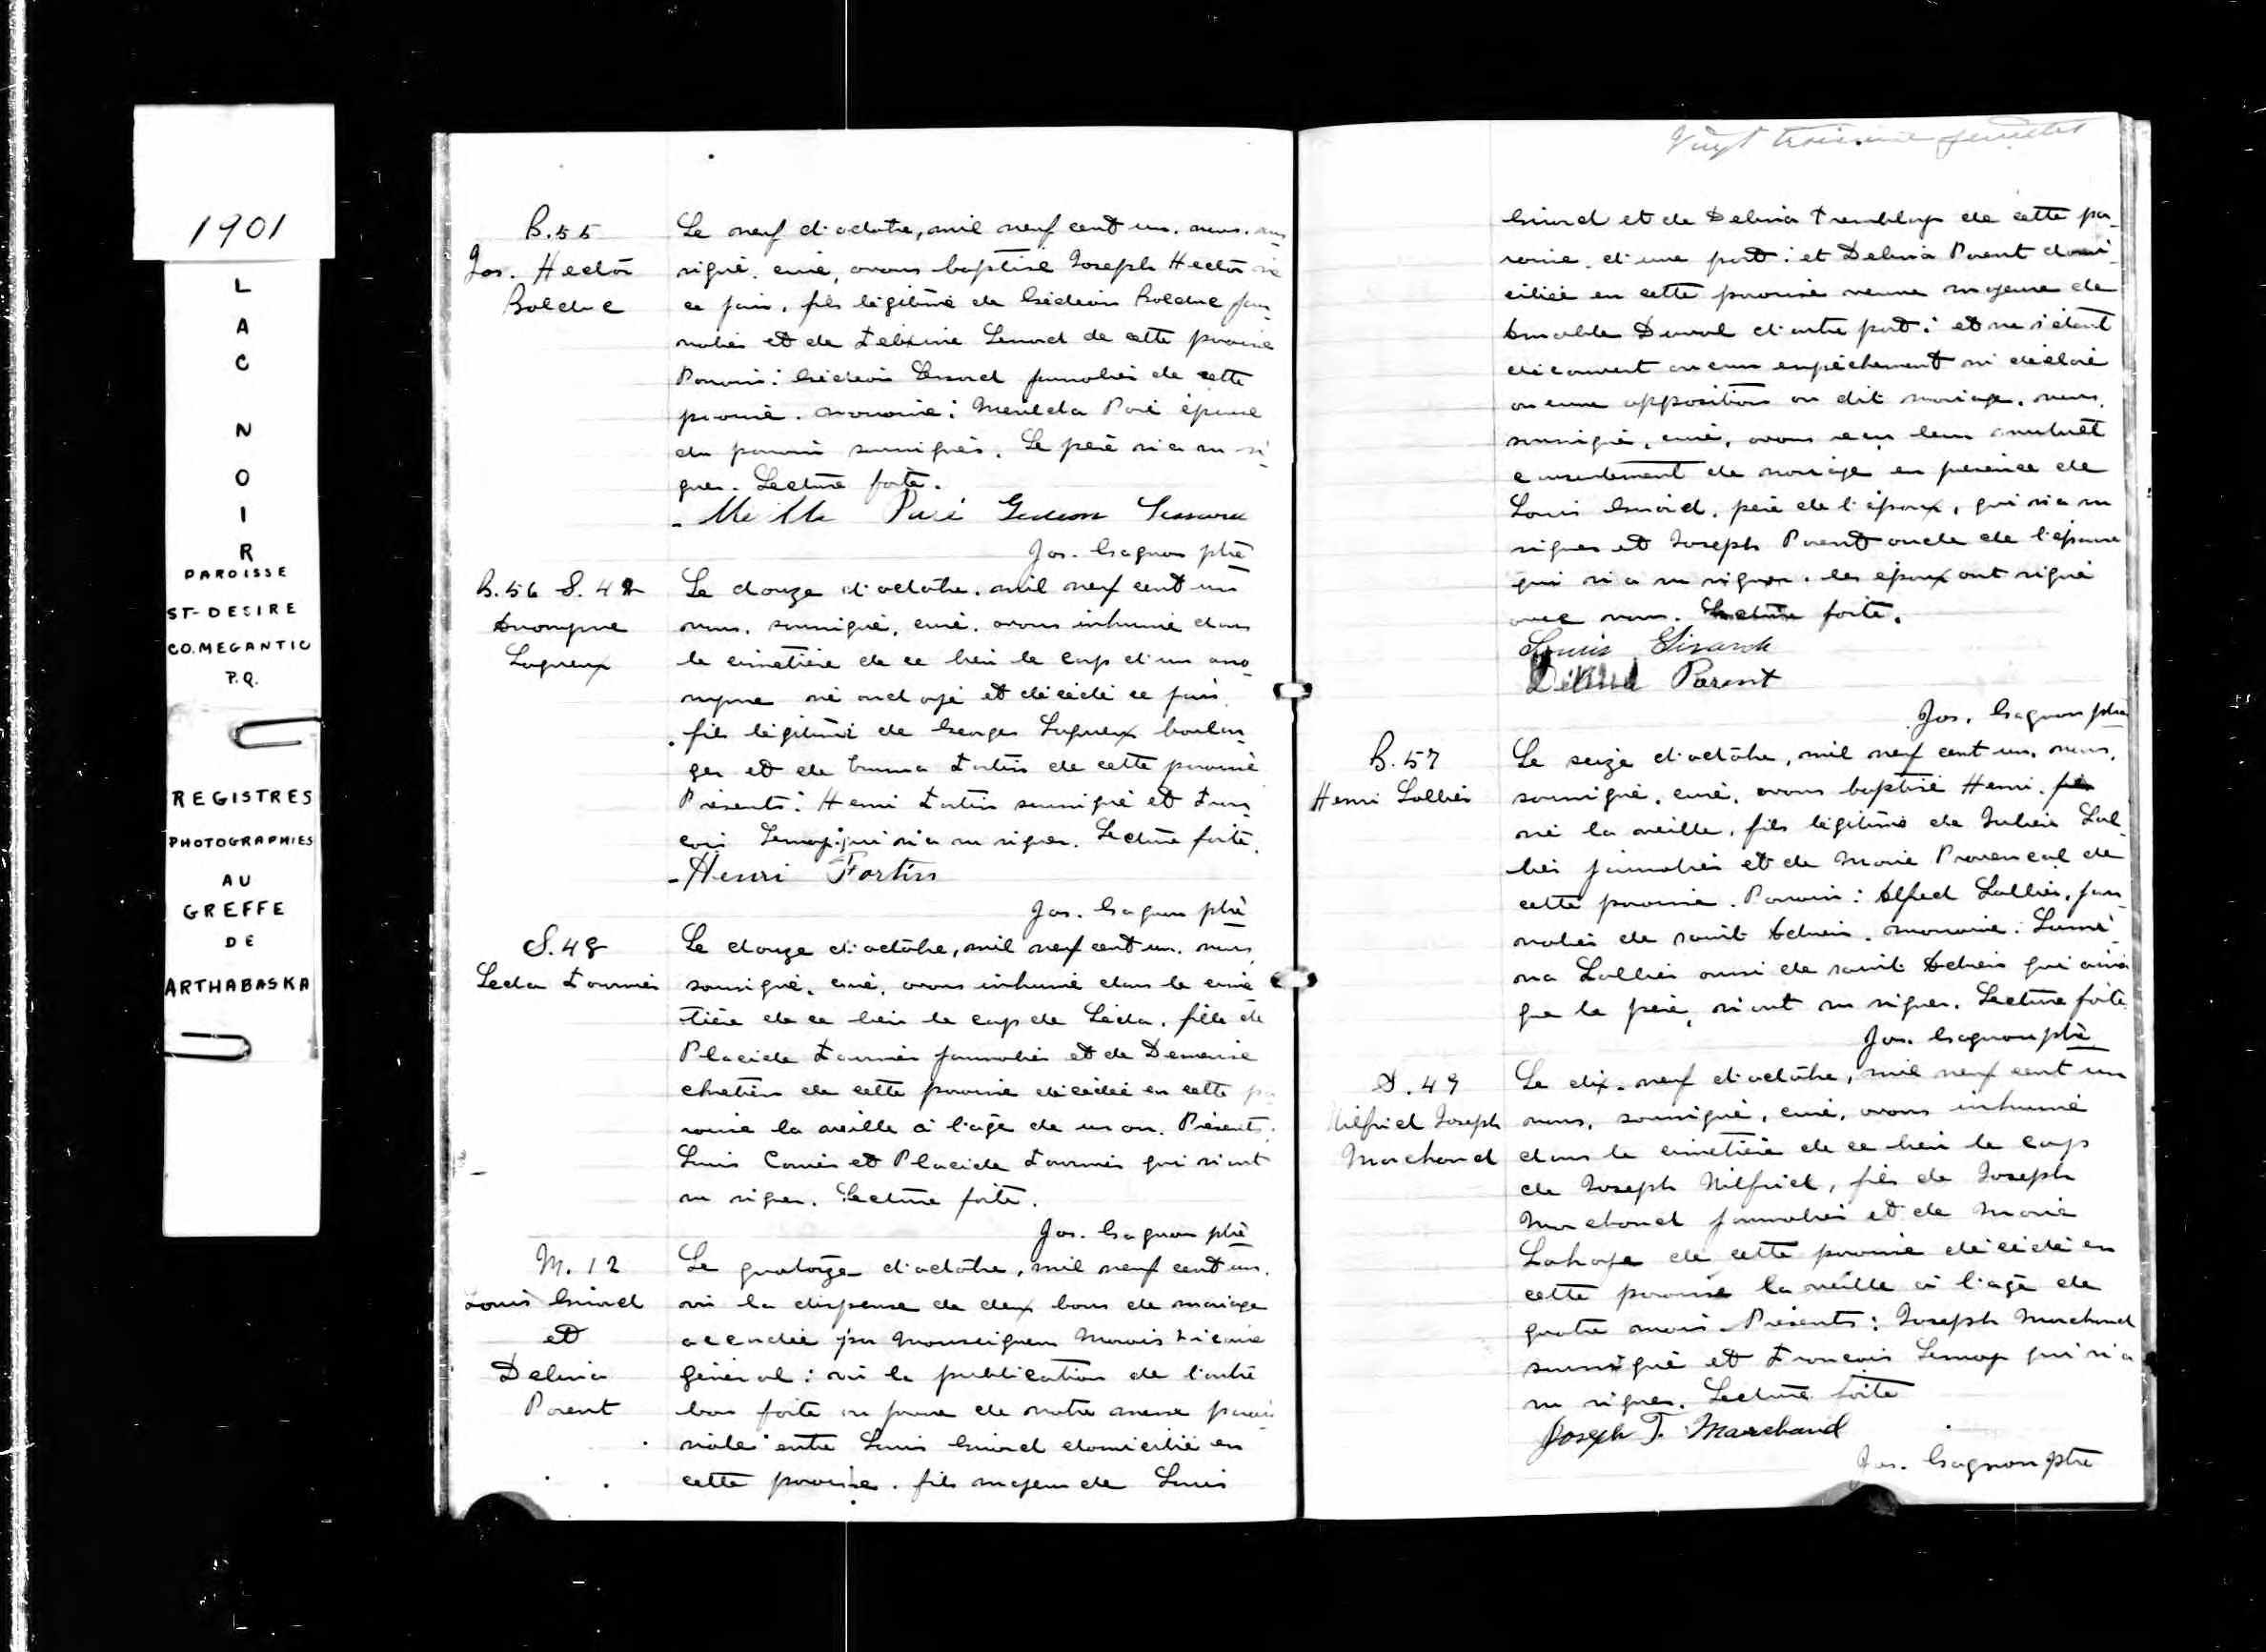 1901
L
A
C
N
O
I
R
PAROISSE
ST-DESIRE
CO.MEGANTIC
P.Q.
REGISTRES
PHOTOGRAPHIES
AU
GREFFE
DE
ARTHABASKA
B.55
Jos. Hector
Bolduc
Le neuf d'octobre, mil neuf cent un, nous, sous
signé, curé, avons baptisé Joseph Hector né
ce jour, fils légitime de Gédéon Bolduc jour
nalier et de Lessard de cette paroisse
Parrain: Gédéon Lessard journalier de cette
paroisse. marraine: Paré épouse
du parrain soussignés. Le père n'a su si
gner. Lecture faite.
Paré Gedeon Lessard
Jos. Gagnon ptre
B.56 S.47
Anonyme
Lagueux
Le douze d'octobre, mil neuf cent un
nous, soussigné, curé, avons inhumé dans
le cimetière de ce lieu le corps d'un ano
nyme né ondoyé et décédé ce jour,
fils légitime de Georges Lagueux boulan
ger et de Emma Fortin de cette paroisse
Présents: Henri Fortin soussigné et Fran
çois Lemay qui n'a su signer. Lecture faite.
Henri Fortin
Jos. Gagnon ptre
S.48
Leda Fournier
Le douze d'octobre, mil neuf cent un, nous,
sousigné, curé, avons inhumé dans le cime
tière de ce lieu le corps de Léda, fille de
Placide Fournier journalier et de Demerise
chretien de cette paroisse décédée en cette pa
roisse la veille à l'âge de un an. Présents:
Louis et Placide Fournier qui n'ont
su signer. Lecture faite.
Jos. Gagnon ptre
M.12
Louis Girard
et
Delvina
Parent
Le quatorze d'octobre, mil neuf cent un,
vu la dispense de deux bans de mariage
accordée par Monseigneur Marois Vicaire
général: vu la publication de l'autre
ban faite au prone de notre messe parois
siale entre Louis Girard domicilié en
cette paroisse, fils majeur de Louis
Vingt troisième feuillet
Girard et de Delvina Tremblay de cette pa
roisse, d'une part: et Delvina Parent domi
ciliée en cette paroisse veuve majeure de
Amable Duval d'autre part: et ne s'étant
découvert aucun empêchement ni déclaré
aucune opposition au dit mariage, nous,
soussigné, curé, avons reçu leur mutuel
consentement de mariage en présence de
Louis Girard, père de l'époux, qui n'a su
signer et Joseph Parent oncle de l'épouse
qui n'a su signer. les époux ont signé
avec nous. Lecture faite.
Louis Girard
Parent
Jos. Gagnon ptre
B.57
Henri Lallier
Le seize d'octobre, mil neuf cent un, nous,
soussigné, curé, avons baptisé Henri,
né la veille, fils légitime de Julien Lal
lier journalier et de Marie Provencal de
cette paroisse. Parrain: Alfred Lallier, jour
nalier de saint Adrien. marraine:
na Lallier aussi de saint Adrien qui ainsi
que le père, n'ont su signer. Lecture faite
Jos. Gagnon ptre
S.49
Wilfrid Joseph
Marchand
Le dix-neuf d'octobre, mil neuf cent un
nous, soussigné, curé, avons inhumé
dans le cimetière de ce lieu le corps
de Joseph Wilfrid, fils de Joseph
Marchand journalier et de Marie
Lahaye de cette paroisse décédé en
cette paroisse la veille à l'âge de
quatre mois. Présents: Joseph Marchand
soussigné et François Lemay qui n'a
su signer. Lecture faite
Joseph T. Marchand
Jos. Gagnon ptre